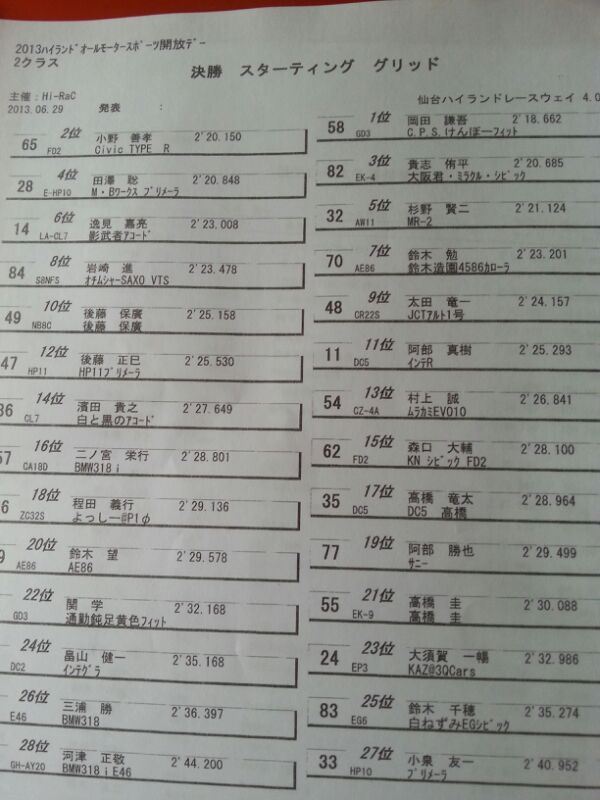 2013ハイランドオールモータースポーツ開放デー
2クラス
決勝 スターティング グリッド
主催:Hi-RaC
2013.06.29 発表 :
仙台ハイランドレースウェイ 4.0
58 1位 岡田 謙吾 2'18.662
GD3 C.P.S.けんぽーフィット
65 2位 小野 善孝 2'20.150
FD2 Civic TYPE R
82 3位 貴志 侑平 2'20.685
EK-4 大阪君・ミラクル・シビック
28 4位 田澤 聡 2'20.848
E-HP10 M・Bワークス プリメーラ
32 5位 杉野 賢二 2'21.124
AW11 MR-2
14 6位 逸見 嘉亮 2'23.008
LA-CL7 影武者アコード
70 7位 鈴木 勉 2'23.201
AE86 鈴木造園4586カローラ
84 8位 岩崎 進 2'23.478
S8NFS オチムシャーSAXO VTS
48 9位 太田 竜一 2'24.157
CR22S JCTアルト1号
49 10位 後藤 保廣 2'25.158
NB8C 後藤 保廣
11 11位 阿部 真樹 2'25.293
DC5 インテR
47 12位 後藤 正巳 2'25.530
HP11 HP11プリメーラ
54 13位 村上 誠 2'26.841
CZ-4A ムラカミEVO10
36 14位 濱田 貴之 2'27.649
CL7 白と黒のアコード
62 15位 森口 大輔 2'28.100
FD2 KN シビック FD2
57 16位 二ノ宮 栄行 2'28.801
CA18D BMW318i
35 17位 高橋 竜太 2'28.964
DC5 DC5 高橋
6 18位 程田 義行 2'29.136
ZC32S よっしー#P1φ
77 19位 阿部 勝也 2'29.499
サニー
9 20位 鈴木 望 2'29.578
AE86 AE86
55 21位 高橋 圭 2'30.088
EK-9 高橋 圭
22位 関 学 2'32.168
GD3 通勤鈍足黄色フィット
24 23位 大須賀 一暢 2'32.986
EP3 KAZ@3QCars
24位 畠山 健一 2'35.168
DC2 インテグラ
83 25位 鈴木 千穂 2'35.274
EG6 白ねずみEGシビック
26位 三浦 勝 2'36.397
E46 BMW318
33 27位 小泉 友一 2'40.952
HP10 プリメーラ
28位 河津 正敬 2'44.200
GH-AY20 BMW318iE46